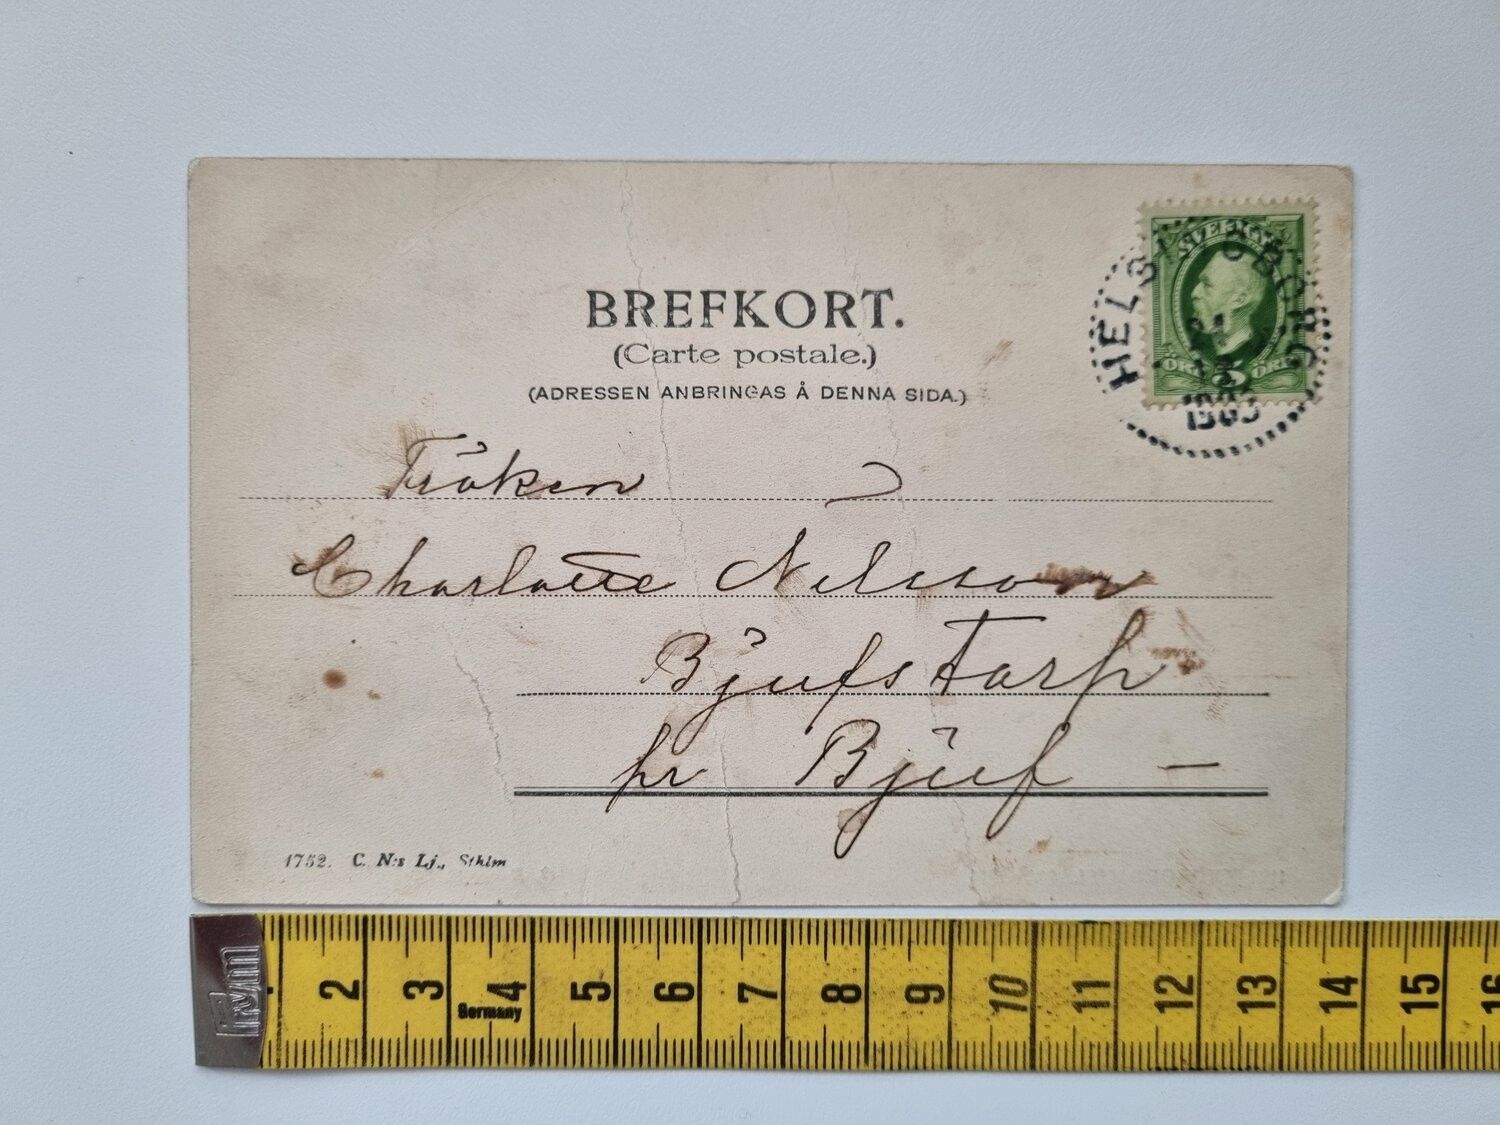 BREFKORT.
(Carte postale.)
(ADRESSEN ANBRINGAS Å DENNA SIDA.)
SVERIGE
ÖRE 5 ÖRE
HELSINGBORG
1903
Fröken
Charlotte Nilsson
Bjufstorp
pr Bjuf –
1752. C. N:s Lj., Sthlm
2 3 4 5 6 7 8 9 10 11 12 13 14 15 16
Germany